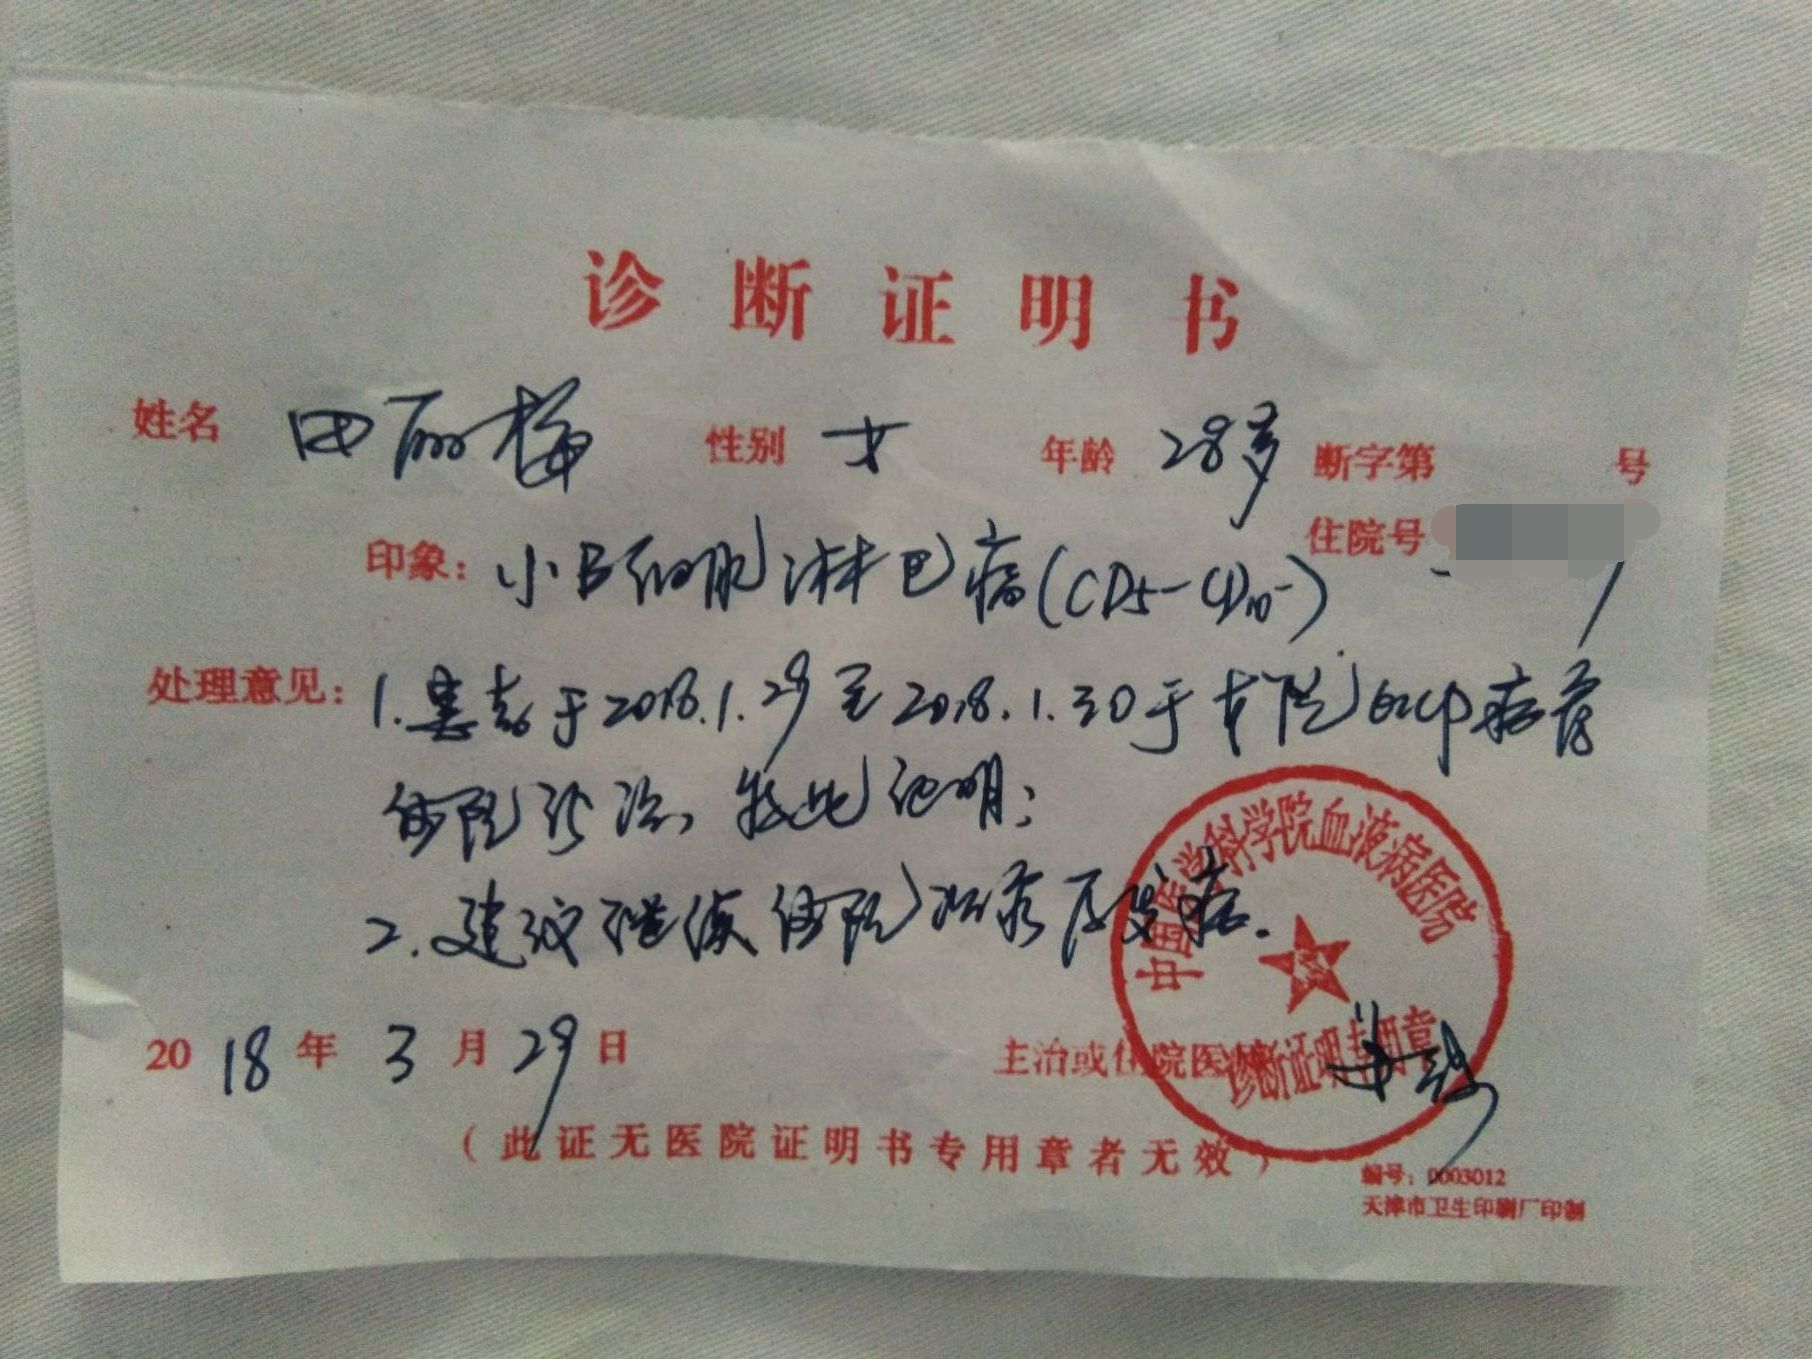 诊断证明书
姓名 田丽梅 性别 女 年龄 28岁 断字第 号
住院号
印象：小B细胞淋巴瘤(CD5-CD10-)
处理意见：1.患者于2018.1.29至2018.1.30于本院 病房
住院诊治，特此证明；
2.建议继续住院治疗原发病.
2018年3月29日 主治或住院医
中国医学科学院血液病医院
诊断证明专用章
（此证无医院证明书专用章者无效）
编号：0003012
天津市卫生印刷厂印制